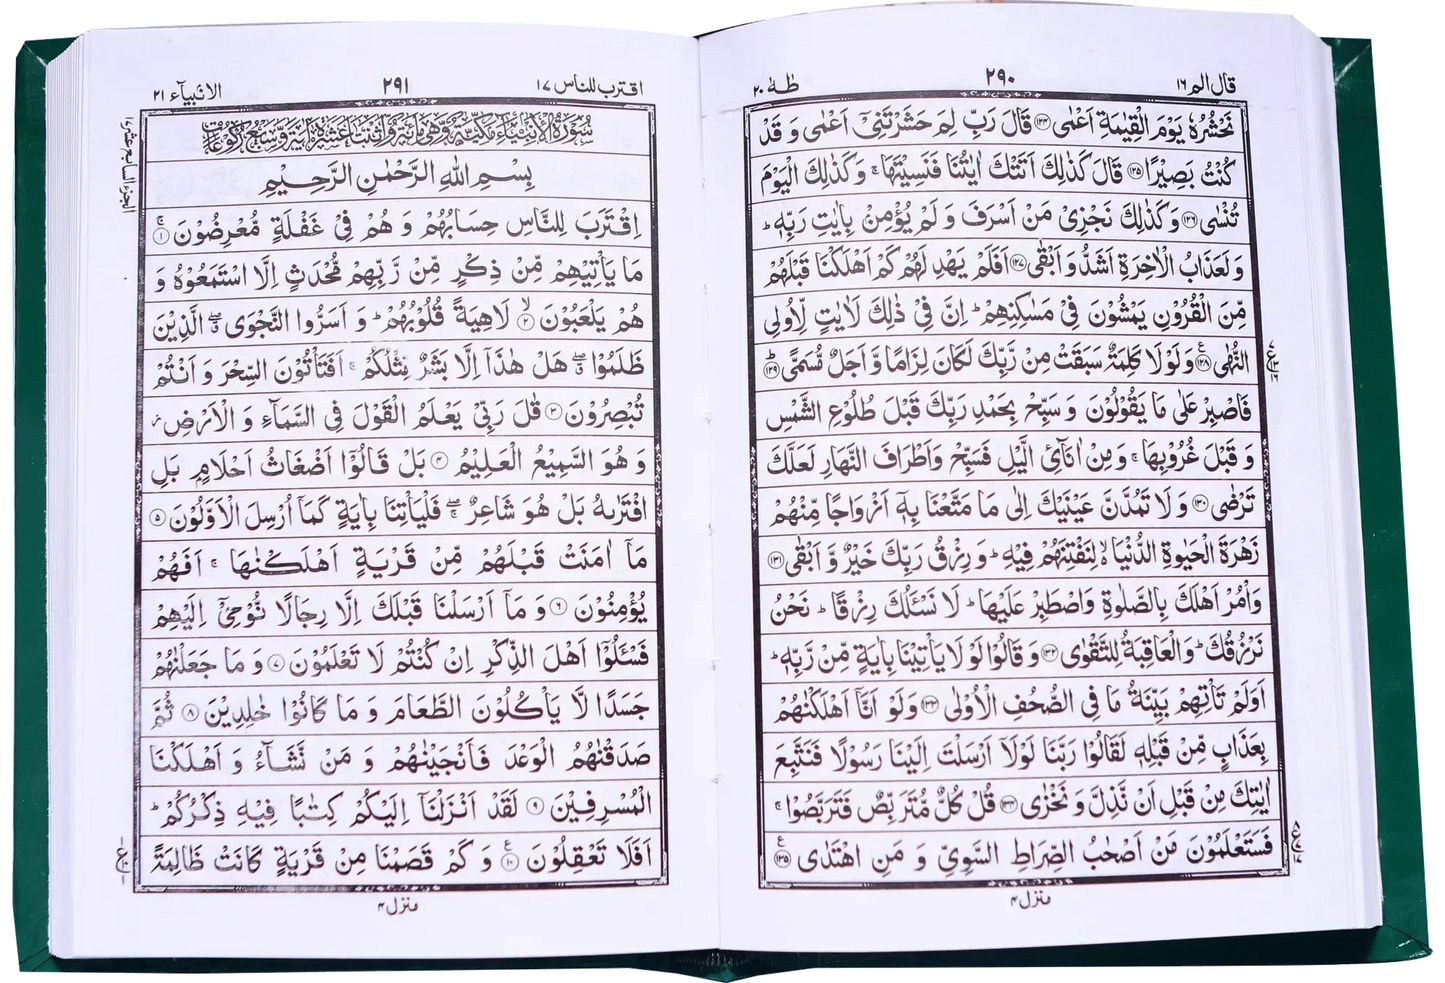 قال الم ١٦
٢٩٠
طٰهٰ ٢٠
نَحْشُرُهٗ يَوْمَ الْقِيٰمَةِ اَعْمٰى ۝١٢٤ قَالَ رَبِّ لِمَ حَشَرْتَنِيْۤ اَعْمٰى وَ قَدْ
كُنْتُ بَصِيْرًا ۝١٢٥ قَالَ كَذٰلِكَ اَتَتْكَ اٰيٰتُنَا فَنَسِيْتَهَا ۚ وَ كَذٰلِكَ الْيَوْمَ
تُنْسٰى ۝١٢٦ وَ كَذٰلِكَ نَجْزِيْ مَنْ اَسْرَفَ وَ لَمْ يُؤْمِنْۢ بِاٰيٰتِ رَبِّهٖ ؕ
وَ لَعَذَابُ الْاٰخِرَةِ اَشَدُّ وَ اَبْقٰى ۝١٢٧ اَفَلَمْ يَهْدِ لَهُمْ كَمْ اَهْلَكْنَا قَبْلَهُمْ
مِّنَ الْقُرُوْنِ يَمْشُوْنَ فِيْ مَسٰكِنِهِمْ ؕ اِنَّ فِيْ ذٰلِكَ لَاٰيٰتٍ لِّاُولِي
النُّهٰى ۝١٢٨ وَ لَوْ لَا كَلِمَةٌ سَبَقَتْ مِنْ رَّبِّكَ لَكَانَ لِزَامًا وَّ اَجَلٌ مُّسَمًّى ۝١٢٩
فَاصْبِرْ عَلٰى مَا يَقُوْلُوْنَ وَ سَبِّحْ بِحَمْدِ رَبِّكَ قَبْلَ طُلُوْعِ الشَّمْسِ
وَ قَبْلَ غُرُوْبِهَا ۚ وَ مِنْ اٰنَآئِ الَّيْلِ فَسَبِّحْ وَ اَطْرَافَ النَّهَارِ لَعَلَّكَ
تَرْضٰى ۝١٣٠ وَ لَا تَمُدَّنَّ عَيْنَيْكَ اِلٰى مَا مَتَّعْنَا بِهٖۤ اَزْوَاجًا مِّنْهُمْ
زَهْرَةَ الْحَيٰوةِ الدُّنْيَا ۙ لِنَفْتِنَهُمْ فِيْهِ ؕ وَ رِزْقُ رَبِّكَ خَيْرٌ وَّ اَبْقٰى ۝١٣١
وَ اْمُرْ اَهْلَكَ بِالصَّلٰوةِ وَ اصْطَبِرْ عَلَيْهَا ؕ لَا نَسْـَٔلُكَ رِزْقًا ؕ نَحْنُ
نَرْزُقُكَ ؕ وَ الْعَاقِبَةُ لِلتَّقْوٰى ۝١٣٢ وَ قَالُوْا لَوْ لَا يَاْتِيْنَا بِاٰيَةٍ مِّنْ رَّبِّهٖ ؕ
اَوَلَمْ تَاْتِهِمْ بَيِّنَةُ مَا فِي الصُّحُفِ الْاُوْلٰى ۝١٣٣ وَ لَوْ اَنَّاۤ اَهْلَكْنٰهُمْ
بِعَذَابٍ مِّنْ قَبْلِهٖ لَقَالُوْا رَبَّنَا لَوْ لَاۤ اَرْسَلْتَ اِلَيْنَا رَسُوْلًا فَنَتَّبِعَ
اٰيٰتِكَ مِنْ قَبْلِ اَنْ نَّذِلَّ وَ نَخْزٰى ۝١٣٤ قُلْ كُلٌّ مُّتَرَبِّصٌ فَتَرَبَّصُوْا ۚ
فَسَتَعْلَمُوْنَ مَنْ اَصْحٰبُ الصِّرَاطِ السَّوِيِّ وَ مَنِ اهْتَدٰى ۝١٣٥
منزل ٤
اقترب للناس ١٧
٢٩١
الانبیآء ٢١
الجزء السابع عشر ١٧
سُوْرَةُ الْاَنْبِيَآءِ مَكِّيَّةٌ وَّهِيَ مِائَةٌ وَّاثْنَتَا عَشْرَةَ اٰيَةً وَّسَبْعُ رُكُوْعَاتٍ
بِسْمِ اللّٰهِ الرَّحْمٰنِ الرَّحِيْمِ
اِقْتَرَبَ لِلنَّاسِ حِسَابُهُمْ وَ هُمْ فِيْ غَفْلَةٍ مُّعْرِضُوْنَ ۝١ۚ
مَا يَاْتِيْهِمْ مِّنْ ذِكْرٍ مِّنْ رَّبِّهِمْ مُّحْدَثٍ اِلَّا اسْتَمَعُوْهُ وَ
هُمْ يَلْعَبُوْنَ ۝٢ۙ لَاهِيَةً قُلُوْبُهُمْ ؕ وَ اَسَرُّوا النَّجْوَى ۖۗ الَّذِيْنَ
ظَلَمُوْا ۖۗ هَلْ هٰذَاۤ اِلَّا بَشَرٌ مِّثْلُكُمْ ۚ اَفَتَاْتُوْنَ السِّحْرَ وَ اَنْتُمْ
تُبْصِرُوْنَ ۝٣ قٰلَ رَبِّيْ يَعْلَمُ الْقَوْلَ فِي السَّمَآءِ وَ الْاَرْضِ ؗ
وَ هُوَ السَّمِيْعُ الْعَلِيْمُ ۝٤ بَلْ قَالُوْۤا اَضْغَاثُ اَحْلَامٍۭ بَلِ
افْتَرٰىهُ بَلْ هُوَ شَاعِرٌ ۖۚ فَلْيَاْتِنَا بِاٰيَةٍ كَمَاۤ اُرْسِلَ الْاَوَّلُوْنَ ۝٥
مَاۤ اٰمَنَتْ قَبْلَهُمْ مِّنْ قَرْيَةٍ اَهْلَكْنٰهَا ۚ اَفَهُمْ
يُؤْمِنُوْنَ ۝٦ وَ مَاۤ اَرْسَلْنَا قَبْلَكَ اِلَّا رِجَالًا نُّوْحِيْۤ اِلَيْهِمْ
فَسْـَٔلُوْۤا اَهْلَ الذِّكْرِ اِنْ كُنْتُمْ لَا تَعْلَمُوْنَ ۝٧ وَ مَا جَعَلْنٰهُمْ
جَسَدًا لَّا يَاْكُلُوْنَ الطَّعَامَ وَ مَا كَانُوْا خٰلِدِيْنَ ۝٨ ثُمَّ
صَدَقْنٰهُمُ الْوَعْدَ فَاَنْجَيْنٰهُمْ وَ مَنْ نَّشَآءُ وَ اَهْلَكْنَا
الْمُسْرِفِيْنَ ۝٩ لَقَدْ اَنْزَلْنَاۤ اِلَيْكُمْ كِتٰبًا فِيْهِ ذِكْرُكُمْ ؕ
اَفَلَا تَعْقِلُوْنَ ۝١٠ۧ وَ كَمْ قَصَمْنَا مِنْ قَرْيَةٍ كَانَتْ ظَالِمَةً
منزل ٤